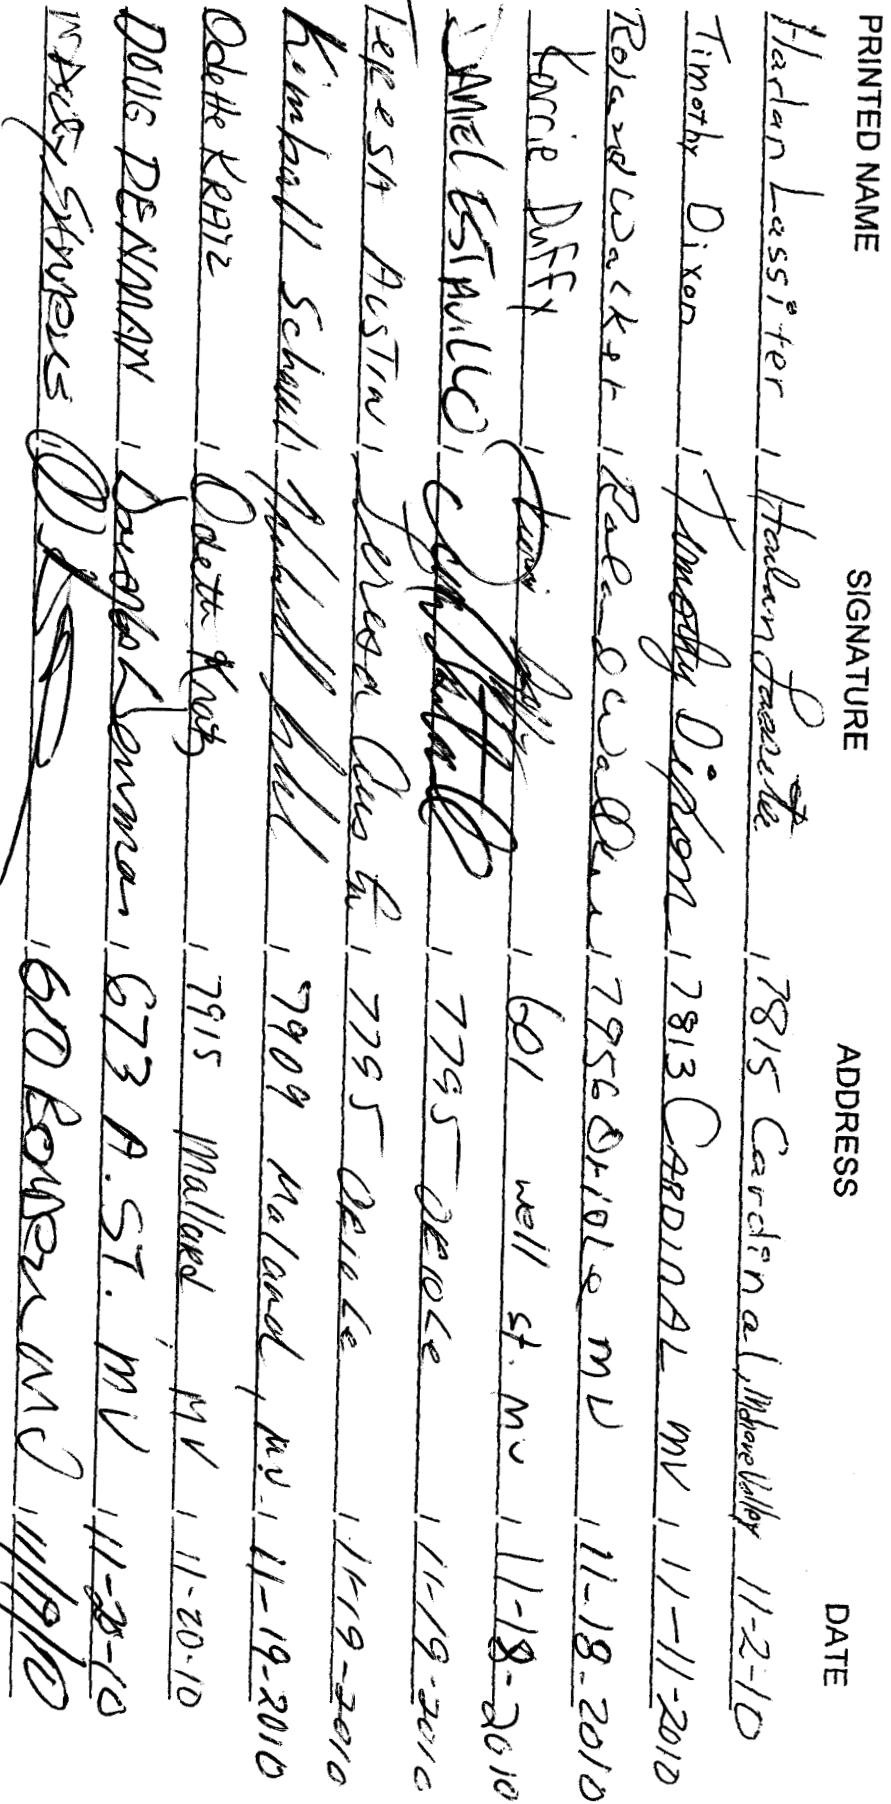 PRINTED NAME SIGNATURE ADDRESS DATE
Harlan Lassiter Harlan Lassiter 7815 Cardinal, Moreno Valley 11-2-10
Timothy Dixon Timothy Dixon 7813 CARDINAL MV 11-11-2010
Roland Walker Roland Walker 7956 Oriole MV 11-18-2010
Korrie Duffy 601 well st. mv 11-18-2010
DANIEL ESTAVILLO 7795 ORIOLE 11-19-2010
Teresa Austin Teresa Austin 7795 Oriole 11-19-2010
Kimball 7909 Maland, m.v. 11-19-2010
Odette KRATZ Odette Kratz 7915 Mallard MV 11-20-10
DOUG DENMAN 673 A. ST. MV 11-10
610 MV